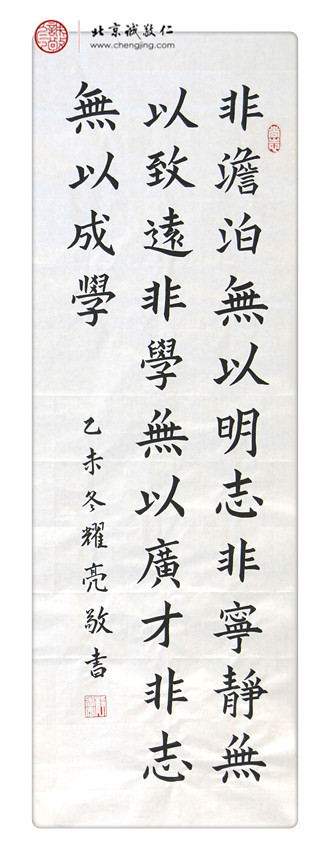 北京诚敬仁
www.chengjing.com
非澹泊無以明志非寧靜無
以致遠非學無以廣才非志
無以成學
乙未冬耀亮敬書